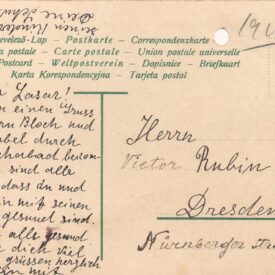 191
seinen Kinder
Deine Schw
evelező-Lap – Postkarte – Correspondenzkarte
nion postale – Carte postale – Union postale universelle
Postcard – Weltpostverein – Dopisnice – Briefkaart
Karta Korespondencyjna – Tarjeta postal
Lasar!
einen Gruss
rn Bloch und
abel durch
sind alle
dass du und
mit seinen
gesund sind.
alles gesund.
dich viel
grüssen herzlich
en mit
Herrn
Victor Rubin
Dresden
Nürnberger